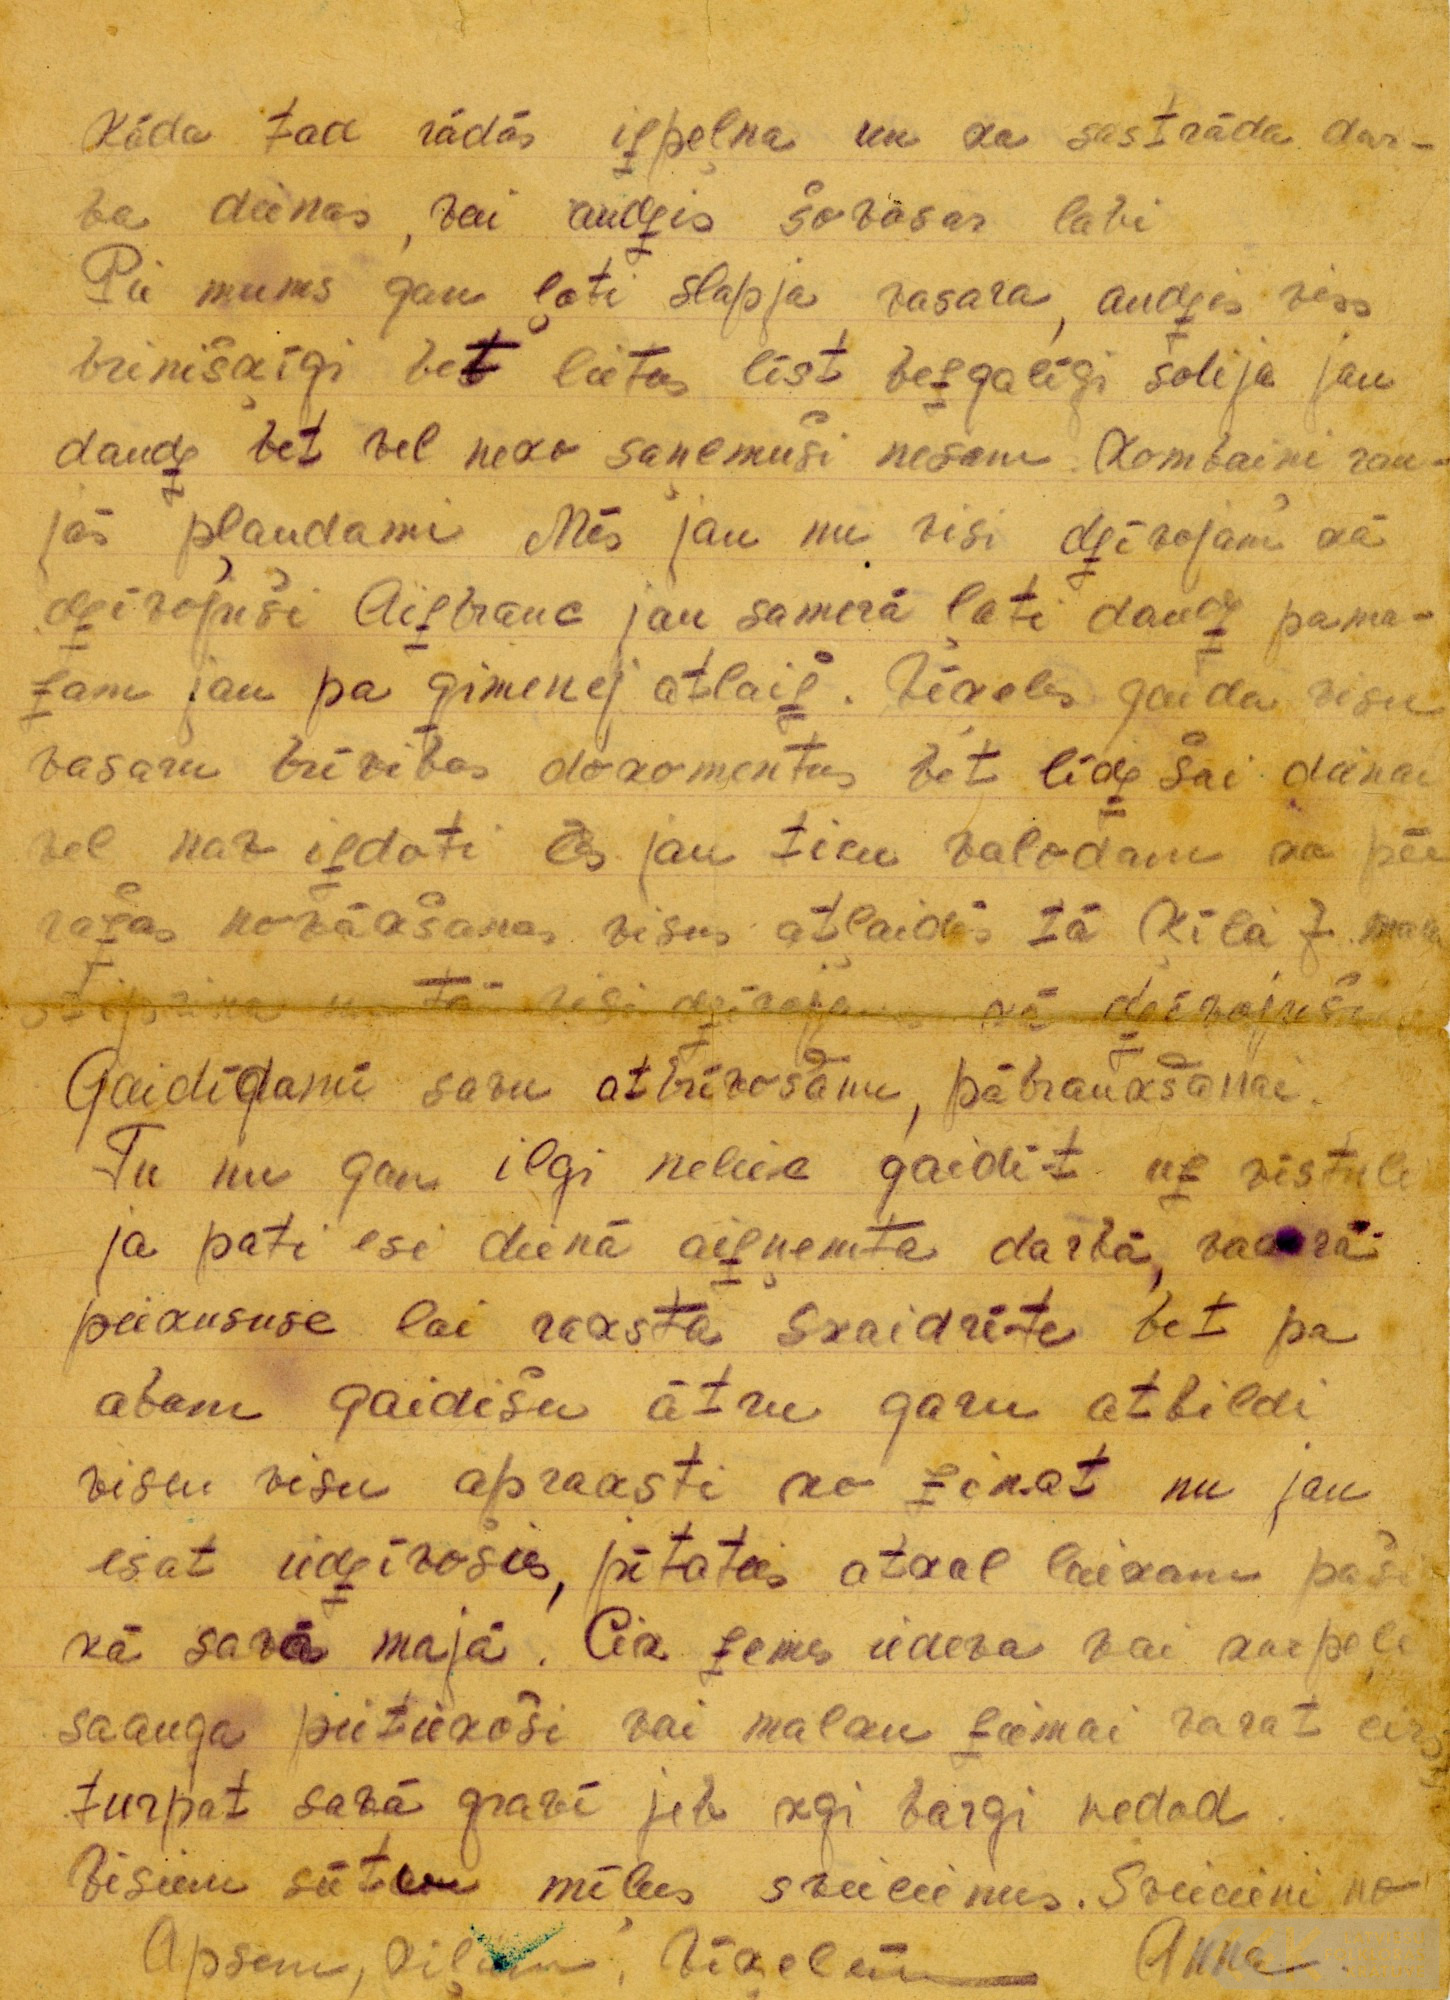 Kāda tad rādās izpeļna un ka sastrāda dar-
ba dienas, vai audzis šovasar labi
Pie mums gan ļoti slapja vasara, audzis viss
brinišķīgi bet lietus līst bezgalīgi solija jau
daudz bet vel neko saņēmuši nesam. Kombaini rau-
jās pļaudami Mēs jau nu visi dzīvojam kā
dzīvojuši Aizbrauc jau samerā ļoti daudz pama-
zam jau pa gimenej atlaiž. Vēķeles gaida visu
vasaru brīvibas dokomentus bet līdz šai dienai
vel nav izdoti Es jau ticu valodam ka pēc
ražas novākšanas visus atļaidīs tā Ķīla
tā visi dzīvojam kā dzīvojuši
Gaidīdami savu atbrīvošanu, pābraukšanai.
Tu nu gan ilgi neliec gaidīt uz vēstuli
ja pati esi dienā aizņemta darbā, vakarā
piekususe lai raksta Skaidrīte bet pa
abam gaidišu ātru garu atbildi
visu visu apraksti ko zinat nu jau
esat iedzīvošies, jūtaties atkal laikam paši
kā savā majā. Cik zemes iedeva vai kartupeļi
saauga pietiekoši vai malku ziemai varat cirst
turpat savā gravī jeb kgi bargi nedod.
Visiem sūtam mīlus sveicienus. Sveicieni no
Apsem, Ķiļiem, Vēķelēm Anna.